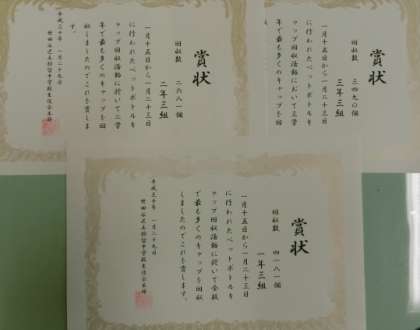 賞状
回収数 三四九〇個
三年三組
一月十五日から一月二十三日
に行われたペットボトルキ
ャップ回収活動において三学
年で最も多くのキャップを回
賞状
回収数 二六八一個
二年三組
一月十五日から一月二十三日
に行われたペットボトルキ
ャップ回収活動に於いて二学
年で最も多くのキャップを回
収しましたのでこれを賞しま
す。
平成三十年 一月二十九日
賞状
回収数 四一八一個
一年三組
一月十五日から一月二十三日
に行われたペットボトルキ
ャップ回収活動に於いて全校
で最も多くのキャップを回収
しましたのでこれを賞します。
平成三十年 一月二十九日